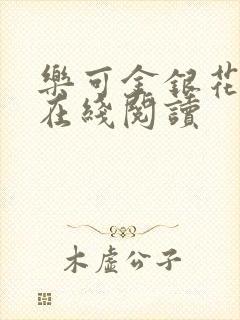 樂可金銀花
在綫閱讀
木虛公子